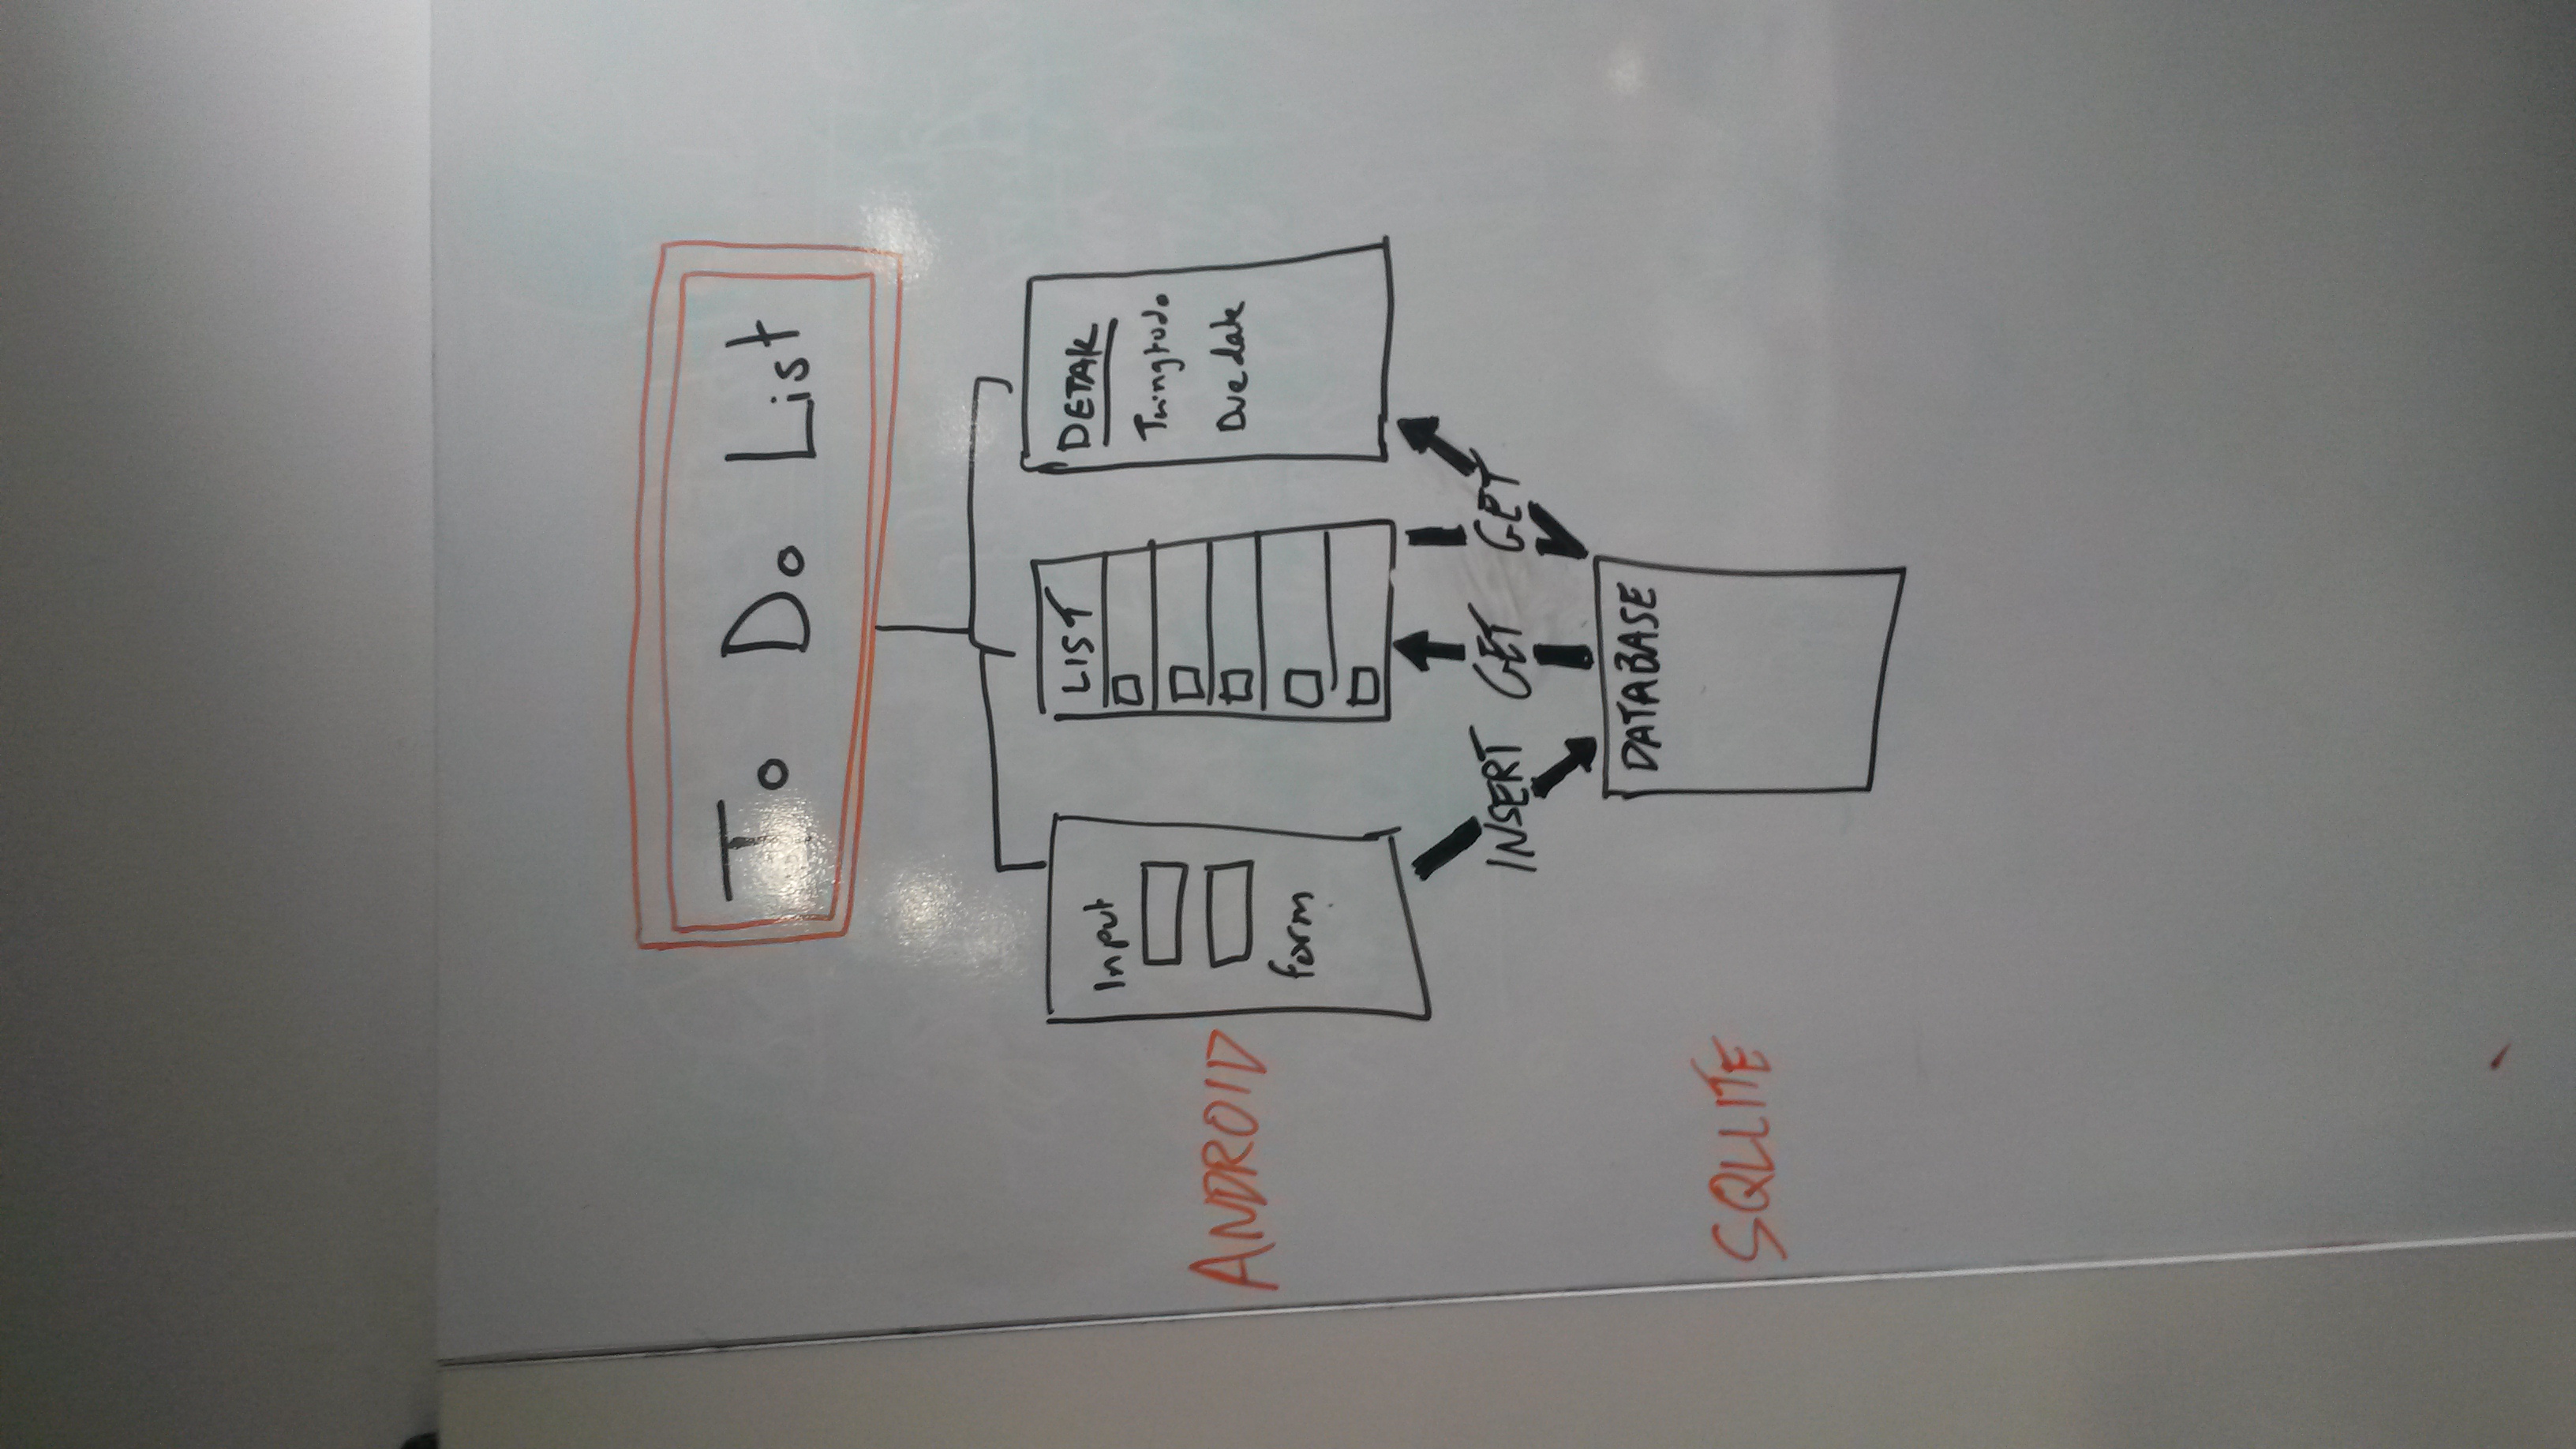 To Do List
Input
form
LIST
DETAIL
Thingtodo
Due date
ANDROID
INSERT
GET
GET
DATABASE
SQLLITE